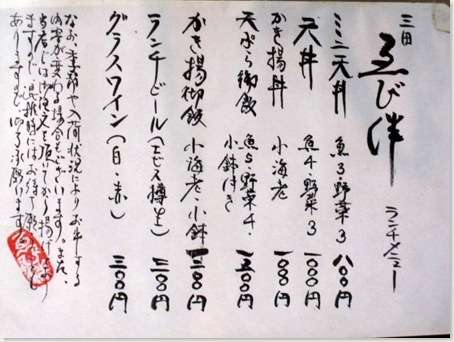 三田
ゑび伴
ランチメニュー
ミニ天丼 魚3・野菜3 八〇〇円
天丼 魚4・野菜3 一〇〇〇円
かき揚丼 小海老 一〇〇〇円
天ぷら御飯 魚5・野菜4・
小鉢付き 一五〇〇円
かき揚御飯 小海老・小鉢 円
ランチビール(エビス樽生) 三〇〇円
グラスワイン(白・赤) 三〇〇円
なお、季節や入荷状況によりお出しする
内容が変わる場合もございます。また、
当店はご注文を頂いてから揚げており
ますので混雑時にはお待ち願
ありますので 承願います